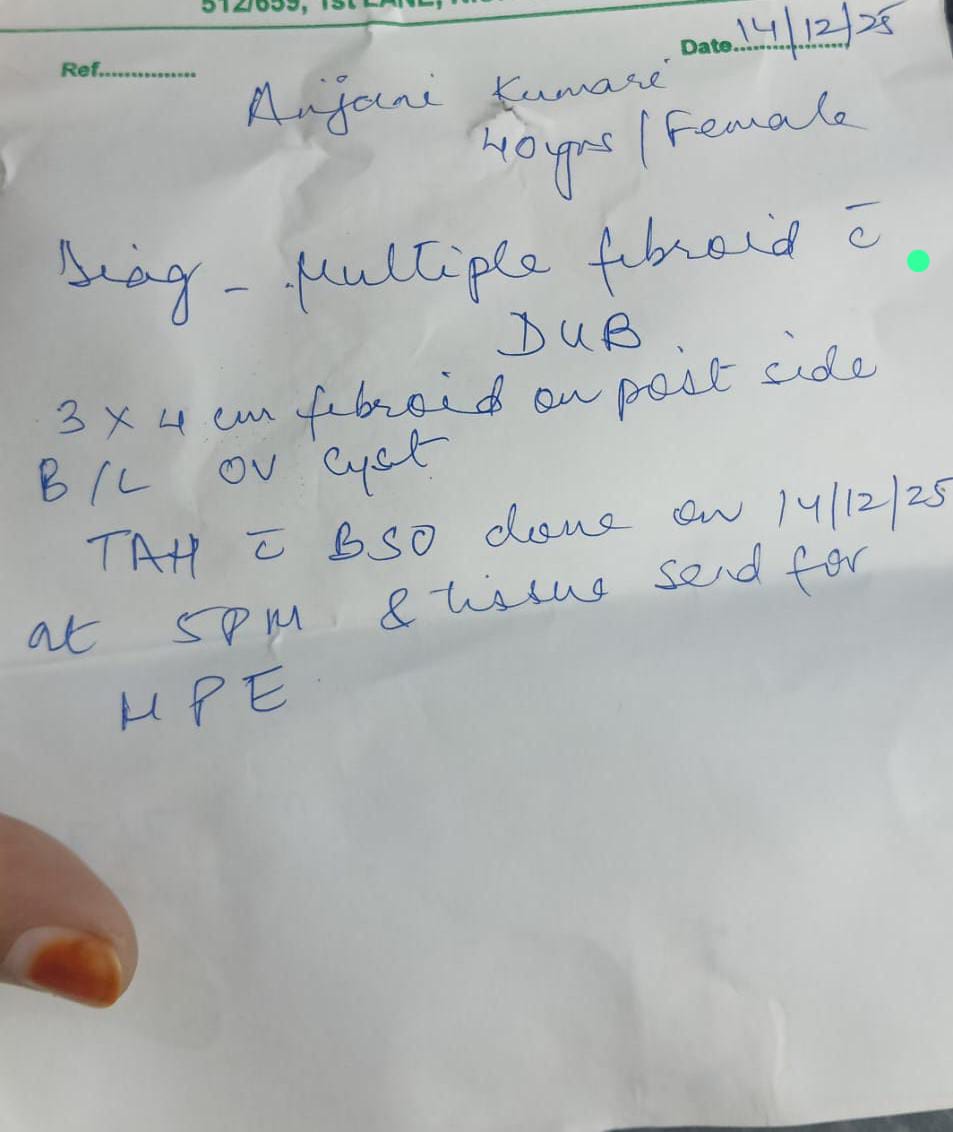 512/659, 1st LANE,
Date..................14/12/25
Ref................
Anjani Kumari
40yrs / Female
Diag - Multiple fibroid c̄
DUB
3 x 4 cm fibroid on post side
B/L OV cyst
TAH c̄ BSO done on 14/12/25
at 5PM & tissue send for
HPE